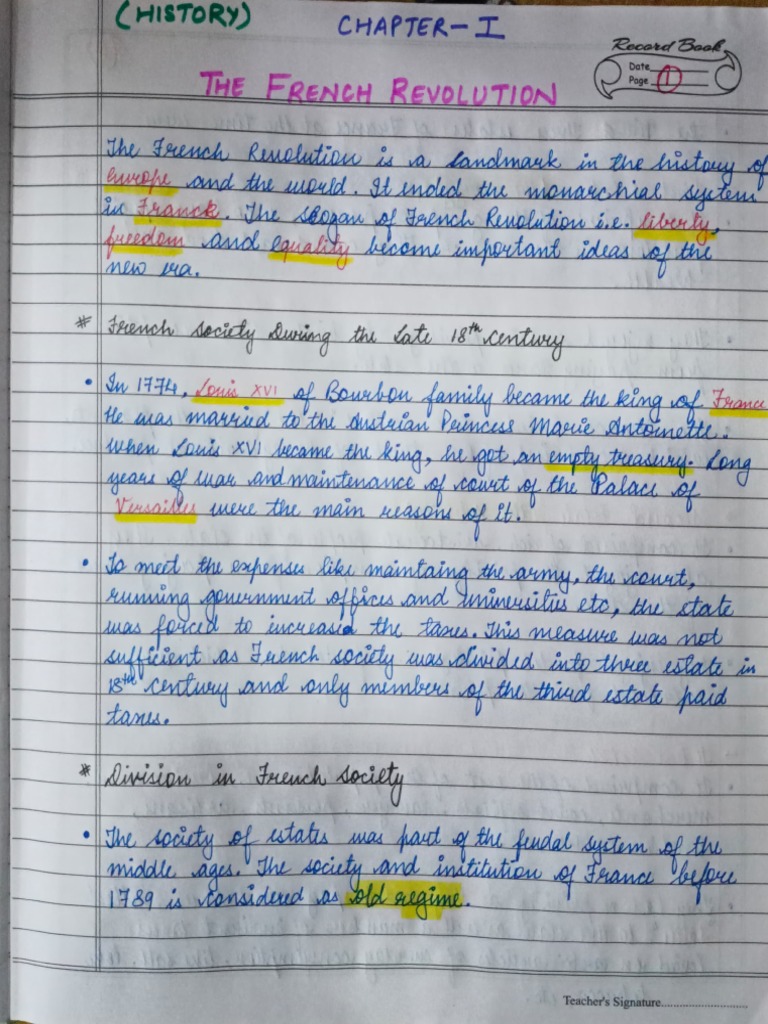 (HISTORY)
CHAPTER-I
Record Book
Date
Page 1
THE FRENCH REVOLUTION
The French Revolution is a landmark in the history of
Europe and the world. It ended the monarchial system
in France. The slogan of French Revolution i.e. liberty,
freedom and equality become important ideas of the
new era.
* French Society During the Late 18th century
• In 1774, Louis XVI of Bourbon family became the king of France
He was married to the Austrian Princess Marie Antoinette.
When Louis XVI became the king, he got an empty treasury. Long
years of war and maintenance of court of the Palace of
Versailles were the main reasons of it.
• To meet the expenses like maintaing the army, the court,
running government offices and universities etc, the state
was forced to increased the taxes. This measure was not
sufficient as French society was divided into three estate in
18th century and only members of the third estate paid
taxes.
* Division in French Society
• The society of estates was part of the feudal system of the
middle ages. The society and institution of France before
1789 is considered as old regime.
Teacher's Signature........................